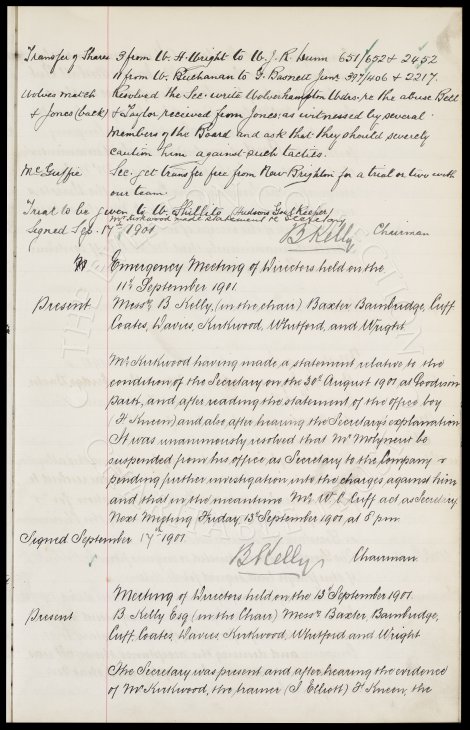 Transfer of Shares 3 from W. H. Wright to W. J. R. Dunn 651/652 & 2452
11 from W. Buchanan to G. Barnett Junr. 397/406 & 2217.
Wolves match Resolved the Sec. write Wolverhampton Wdrs. re the abuse Bell
& Jones (back) & Taylor received from Jones, as witnessed by several
members of the Board and ask that they should severely
caution him against such tactics.
McGuffie Sec. get transfer free from New Brighton for a trial or two with
our team
Trial to be given to W. Shillito (Hudsons Goal Keeper)
Mr Kirkwood made statement re Secretary
Signed Sep. 17th 1901 B Kelly Chairman
Emergency Meeting of Directors held on the
11th September 1901.
Present Messrs B Kelly, (in the chair) Baxter Bainbridge, Cuff
Coates, Davies, Kirkwood, Whitford, and Wright
Mr Kirkwood having made a statement relative to the
condition of the Secretary on the 30th August 1901 at Goodison
Park, and after reading the statement of the office boy
(H Kneen) and also after hearing the Secretary's explanation
It was unanimously resolved that Mr Molyneux be
suspended from his office as Secretary to the Company
pending further investigation into the charges against him
and that in the meantime Mr W. C. Cuff act as Secretary.
Next Meeting Friday 13th September 1901, at 8 pm
Signed September 17th 1901
B Kelly Chairman
Meeting of Directors held on the 13 September 1901
Present B. Kelly Esq (in the Chair) Messrs Baxter, Bainbridge,
Cuff, Coates, Davies, Kirkwood, Whitford and Wright
The Secretary was present and after hearing the evidence
of Mr Kirkwood, the trainer (J Elliott) H Kneen, the